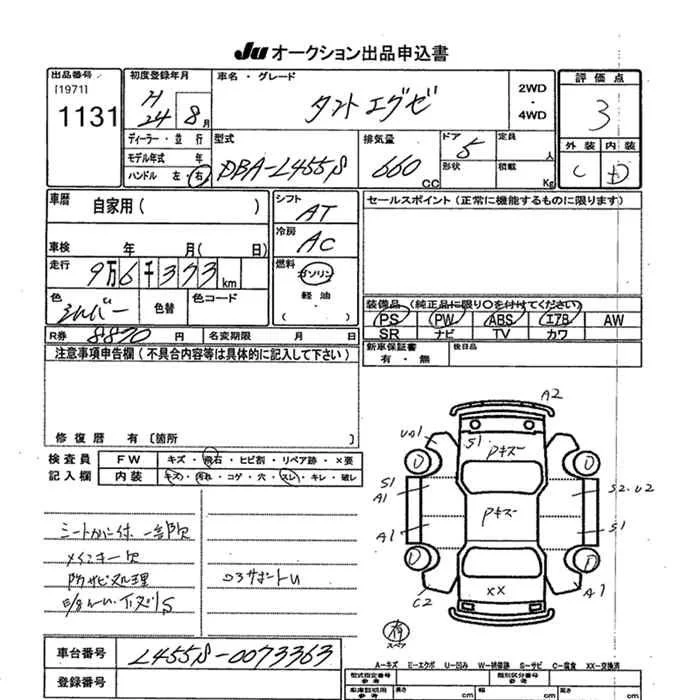 JU オークション出品申込書
出品番号 初度登録年月 車名・グレード 評価点
[1971] H 2WD
1131 24 8月 タント エグゼ ・ 3
4WD
ディーラー・並行 型式 排気量 ドア 5 定員 人 外装 内装
モデル年式 年 DBA-L455S 660 CC 形状 積載 Kg C D
ハンドル 左・右
車暦 自家用( ) シフト AT セールスポイント(正常に機能するものに限ります)
冷房 AC
車検 年 月( 日)
走行 9万6千373km 燃料 ガソリン
軽油
( )
色 シルバー 色替 色コード 装備品(純正品に限り○を付けてください)
PS PW ABS エアB AW
R券 8870円 名変期限 月 日 SR ナビ TV カワ
注意事項申告欄(不具合内容等は具体的に記入して下さい) 新車保証書 後日品
有・無
修復暦 有〔箇所 〕
検査員 FW キズ・飛石・ヒビ割・リペア跡・×要
記入欄 内装 キズ・汚れ・コゲ・穴・スレ・キレ・破レ
シートカバー付 一部欠
メインキー欠
防サビ処理
A2
UA1
S1
Pキズ
D D
S1
A1
S2.U2
Pキズ
A1
S1
D D
C2
××
A1
スペア
車台番号 L455S-0073363
登録番号
A-キズ E-エクボ U-凹み W-補修跡 S-サビ C-腐食 XX-交換済
型式指定番号 類別区分番号
参考 参考
車庫証明用 長さ 幅 高さ
参考 cm cm cm